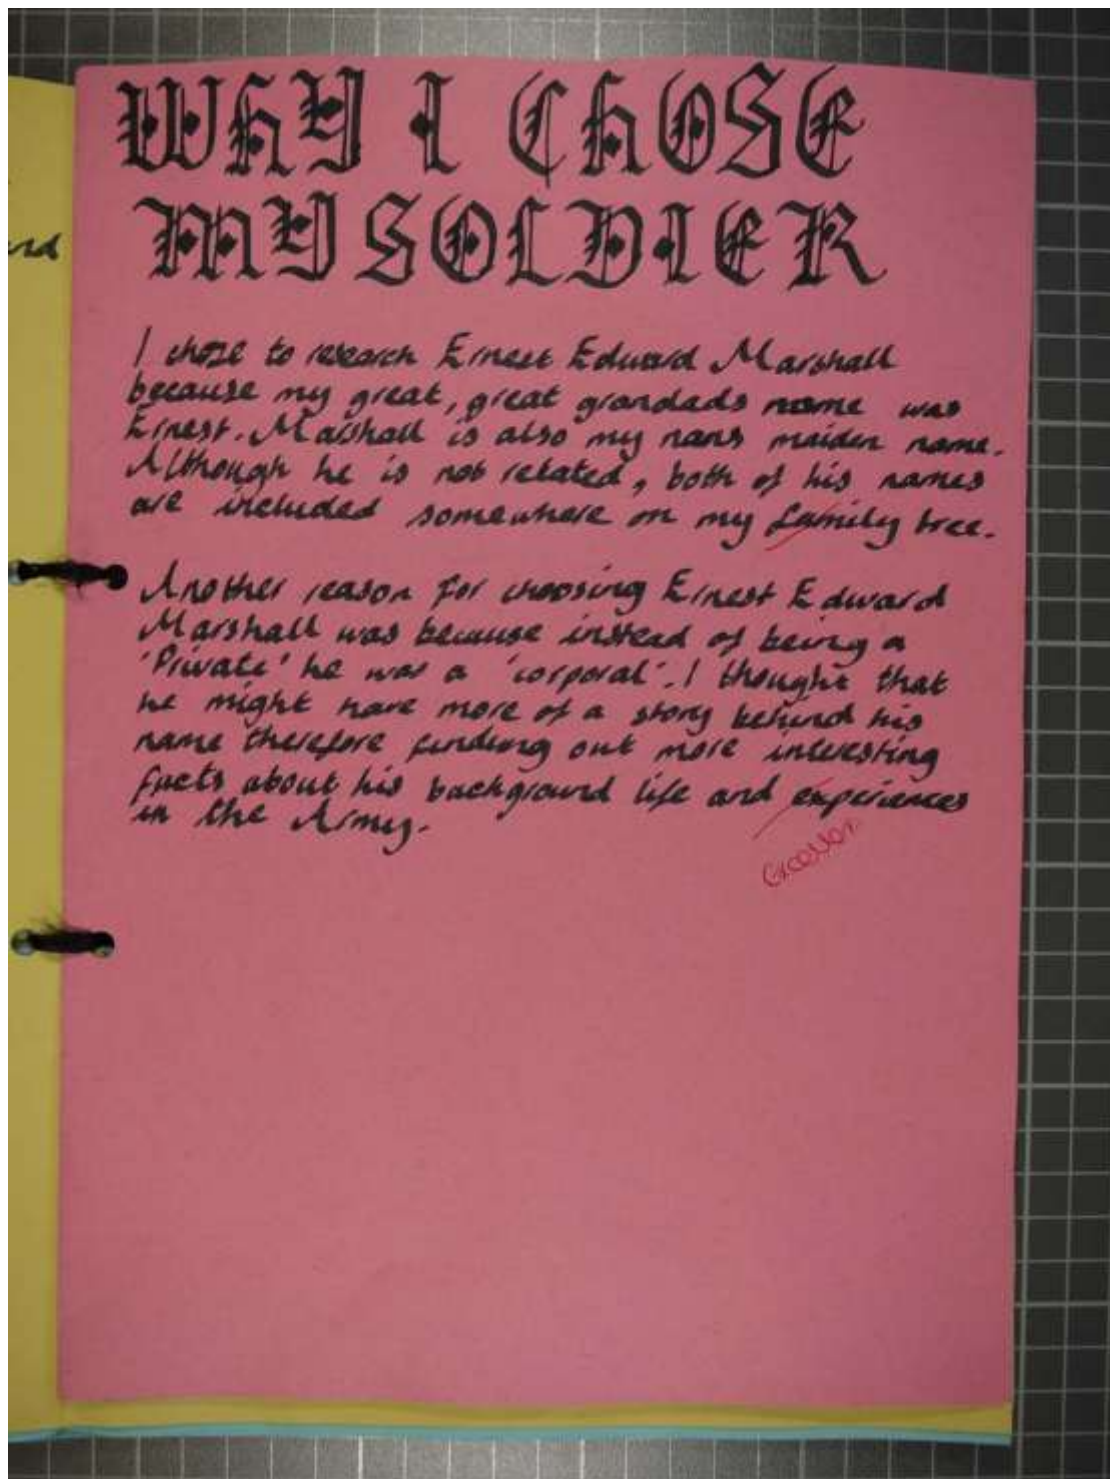 WHY I CHOSE
MY SOLDIER
I chose to research Ernest Edward Marshall
because my great, great grandads name was
Ernest. Marshall is also my nans maiden name.
Although he is not related, both of his names
are included somewhere on my family tree.
Another reason for choosing Ernest Edward
Marshall was because instead of being a
'Private' he was a 'corporal'. I thought that
he might have more of a story behind his
name therefore finding out more interesting
facts about his background life and experiences
in the Army.